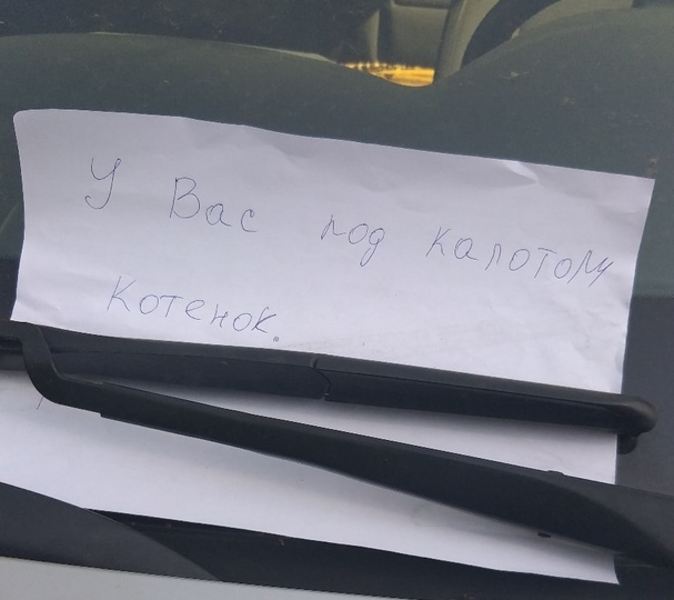 У Вас под капотом
Котенок.